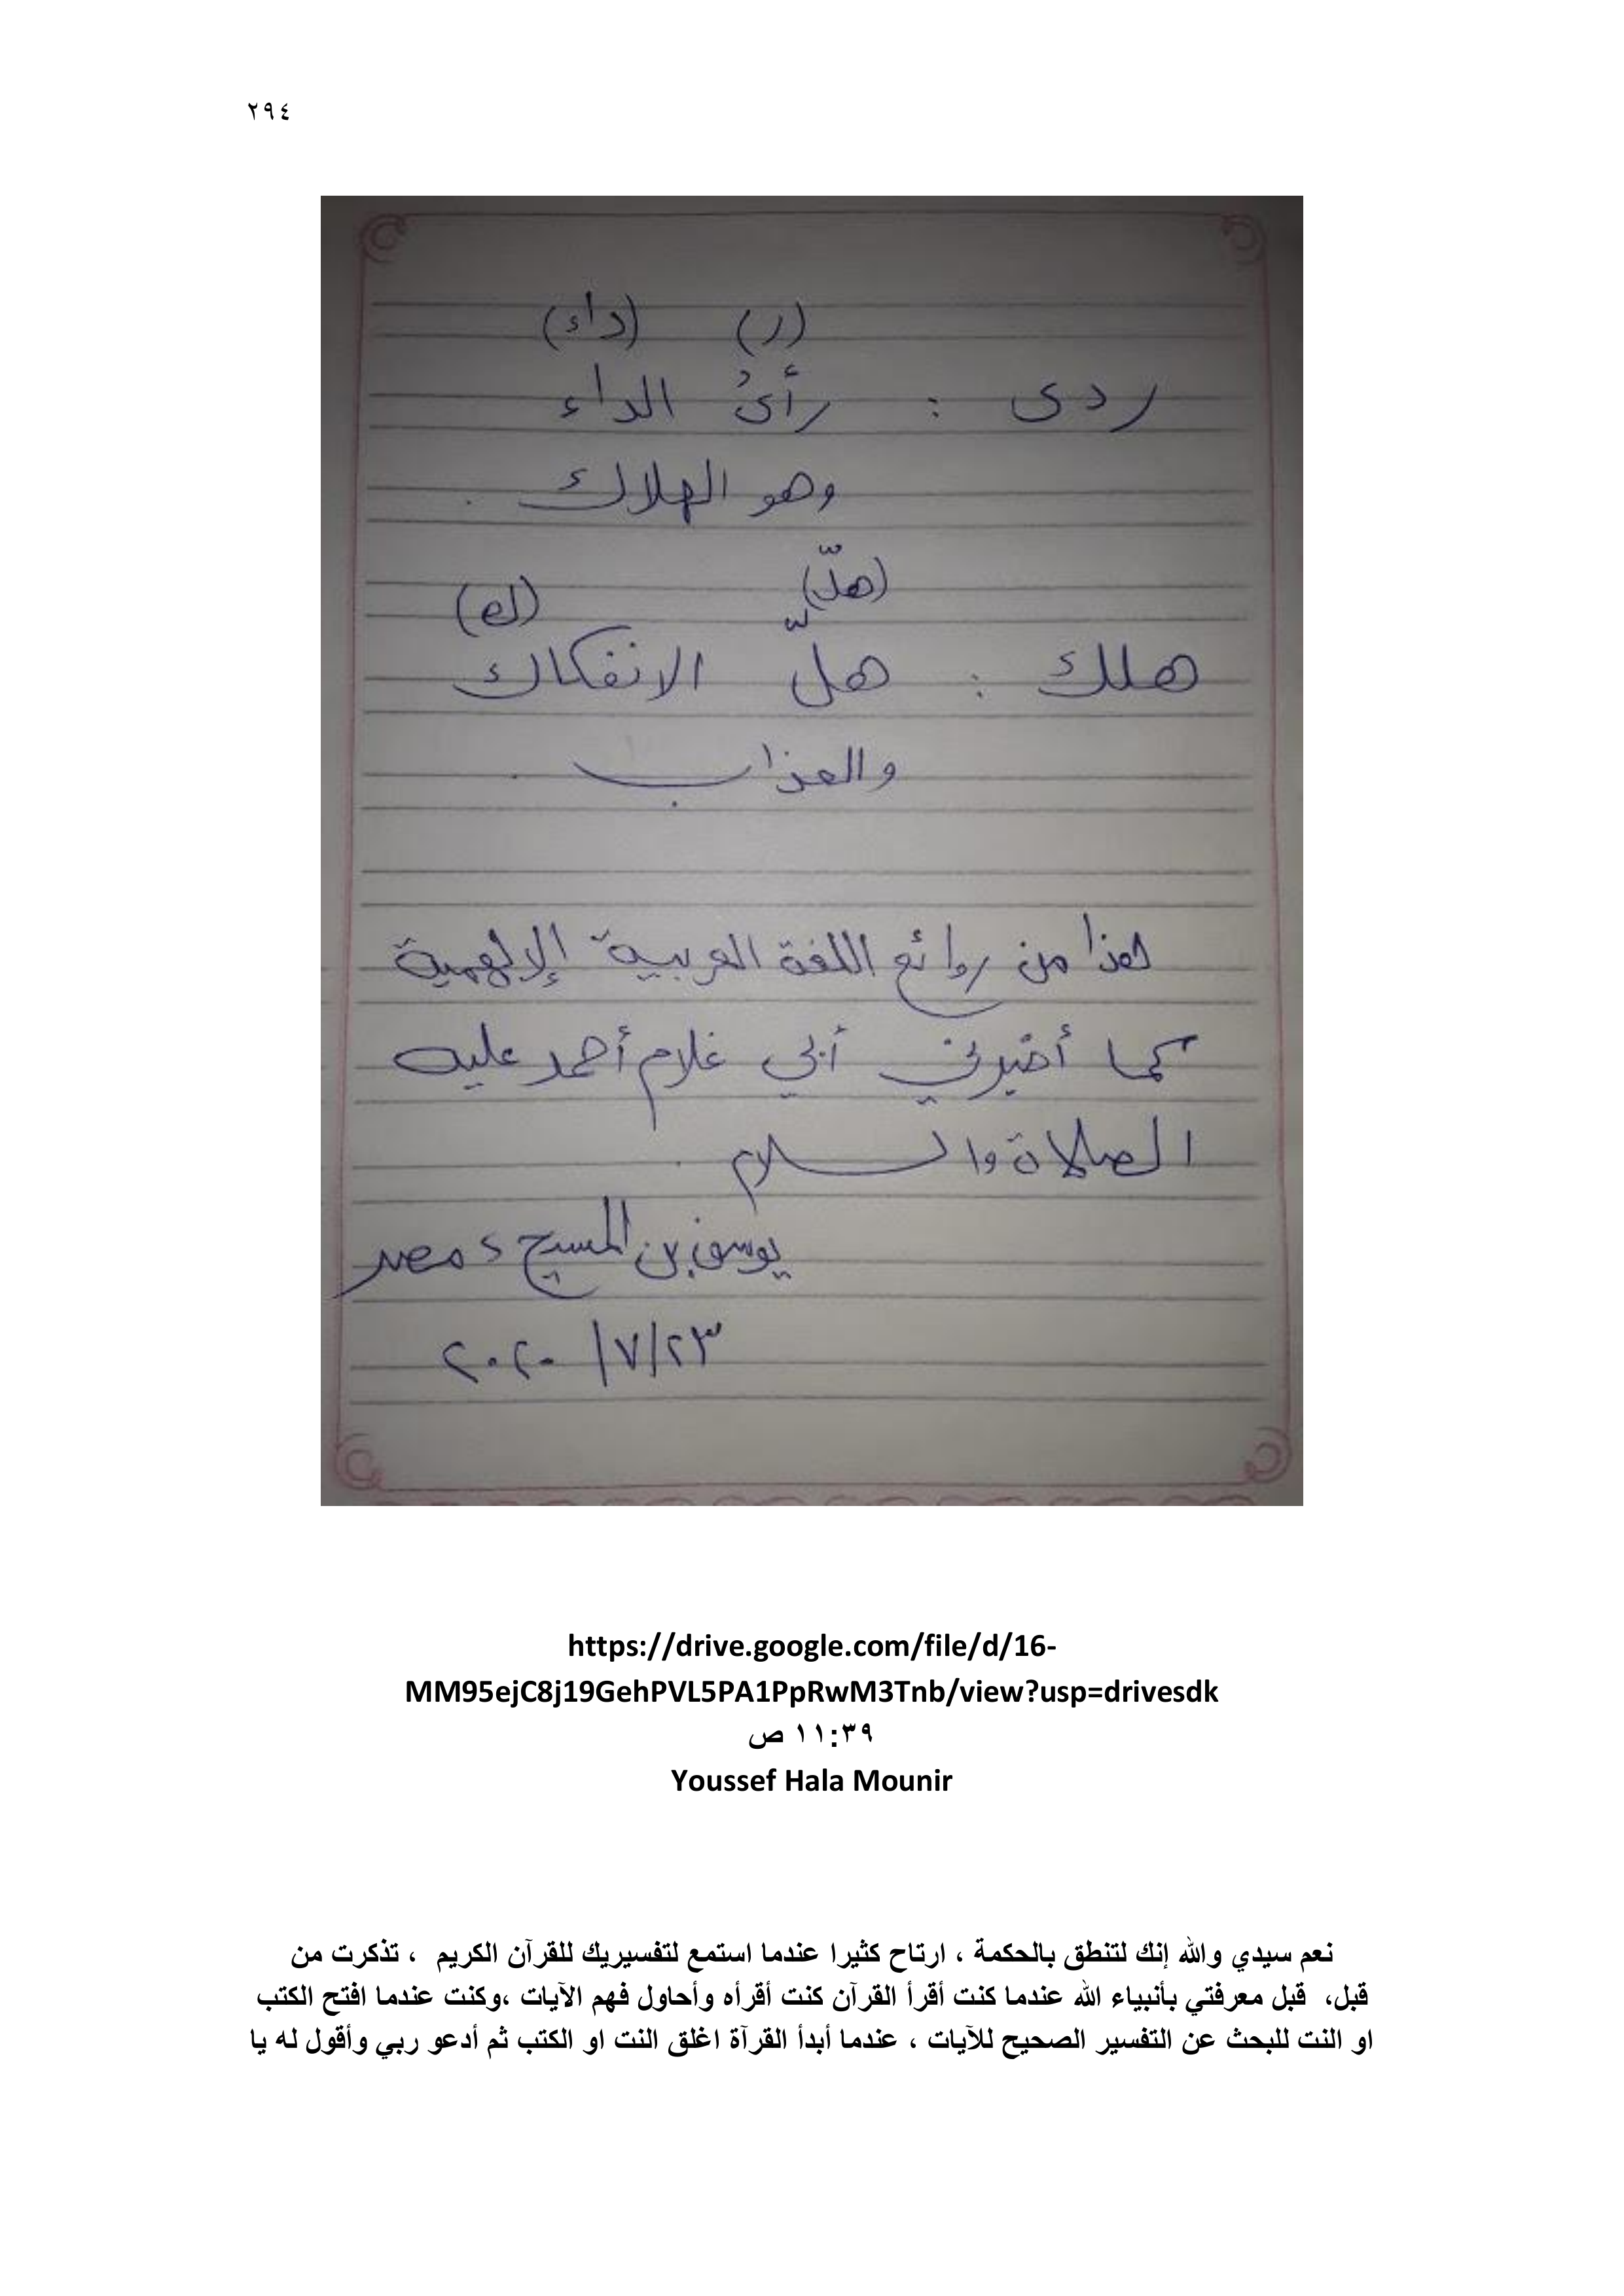 ٢٩٤
(ر) (داء)
ردى : رأىُ الداء
وهو الهلاك .
(هلّ) (ك)
هلك : هلّ الانفكاك
والعذاب .
هذا من روائع اللغة العربية الإلهمية
كما أخبرني أبي غلام أحمد عليه
الصلاة والسلام .
يوسف بن المسيح ، مصر
٢٣/٧/٢٠٢٠
https://drive.google.com/file/d/16-
MM95ejC8j19GehPVL5PA1PpRwM3Tnb/view?usp=drivesdk
١١:٣٩ ص
Youssef Hala Mounir
نعم سيدي والله إنك لتنطق بالحكمة ، ارتاح كثيرا عندما استمع لتفسيريك للقرآن الكريم ، تذكرت من
قبل، قبل معرفتي بأنبياء الله عندما كنت أقرأ القرآن كنت أقرأه وأحاول فهم الآيات ،وكنت عندما افتح الكتب
او النت للبحث عن التفسير الصحيح للآيات ، عندما أبدأ القرآة اغلق النت او الكتب ثم أدعو ربي وأقول له يا